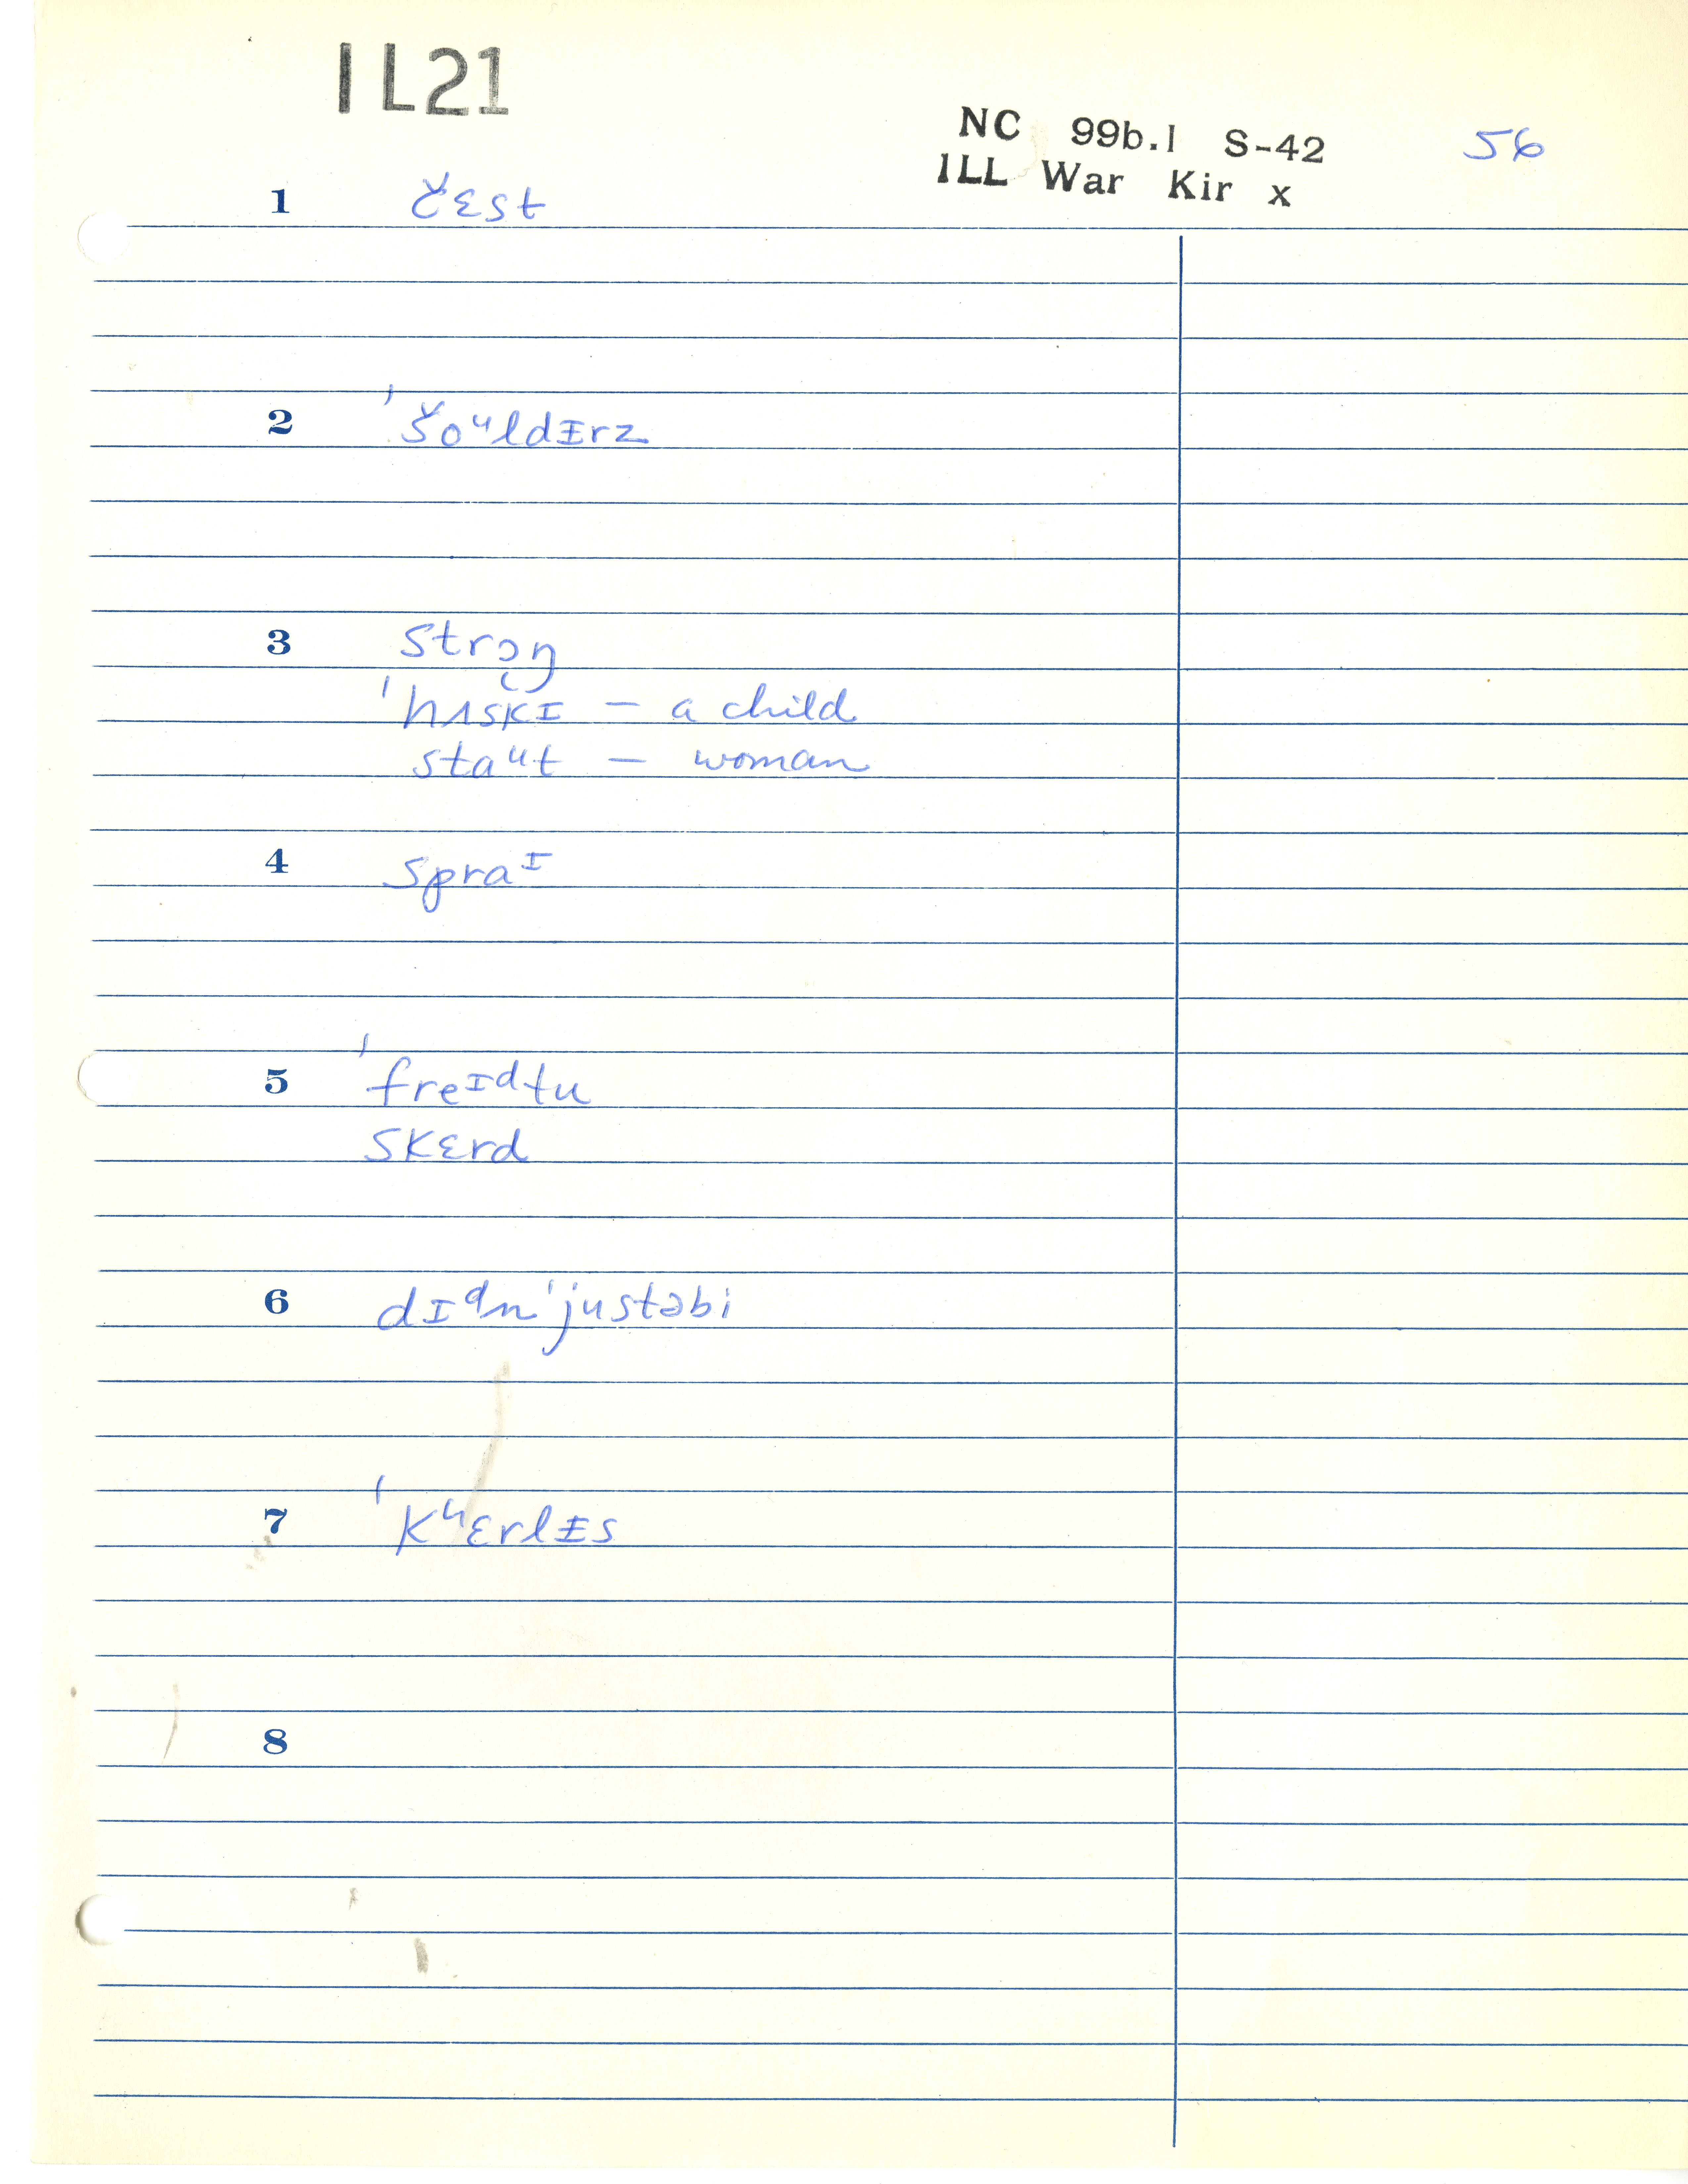 IL21
NC 99b.1 S-42 56
ILL War Kir x
1 čɛst
2 ˈšoᵘldɪ̵rz
3 strɔ̨ŋ
ˈhʌskɪ – a child
staᵘt – woman
4 spraᶦ
5 ˈfreɪᵈtu
skɛrd
6 dɪᵈn ˈjustəbi
7 ˈkʰɛrlɪ̵s
8